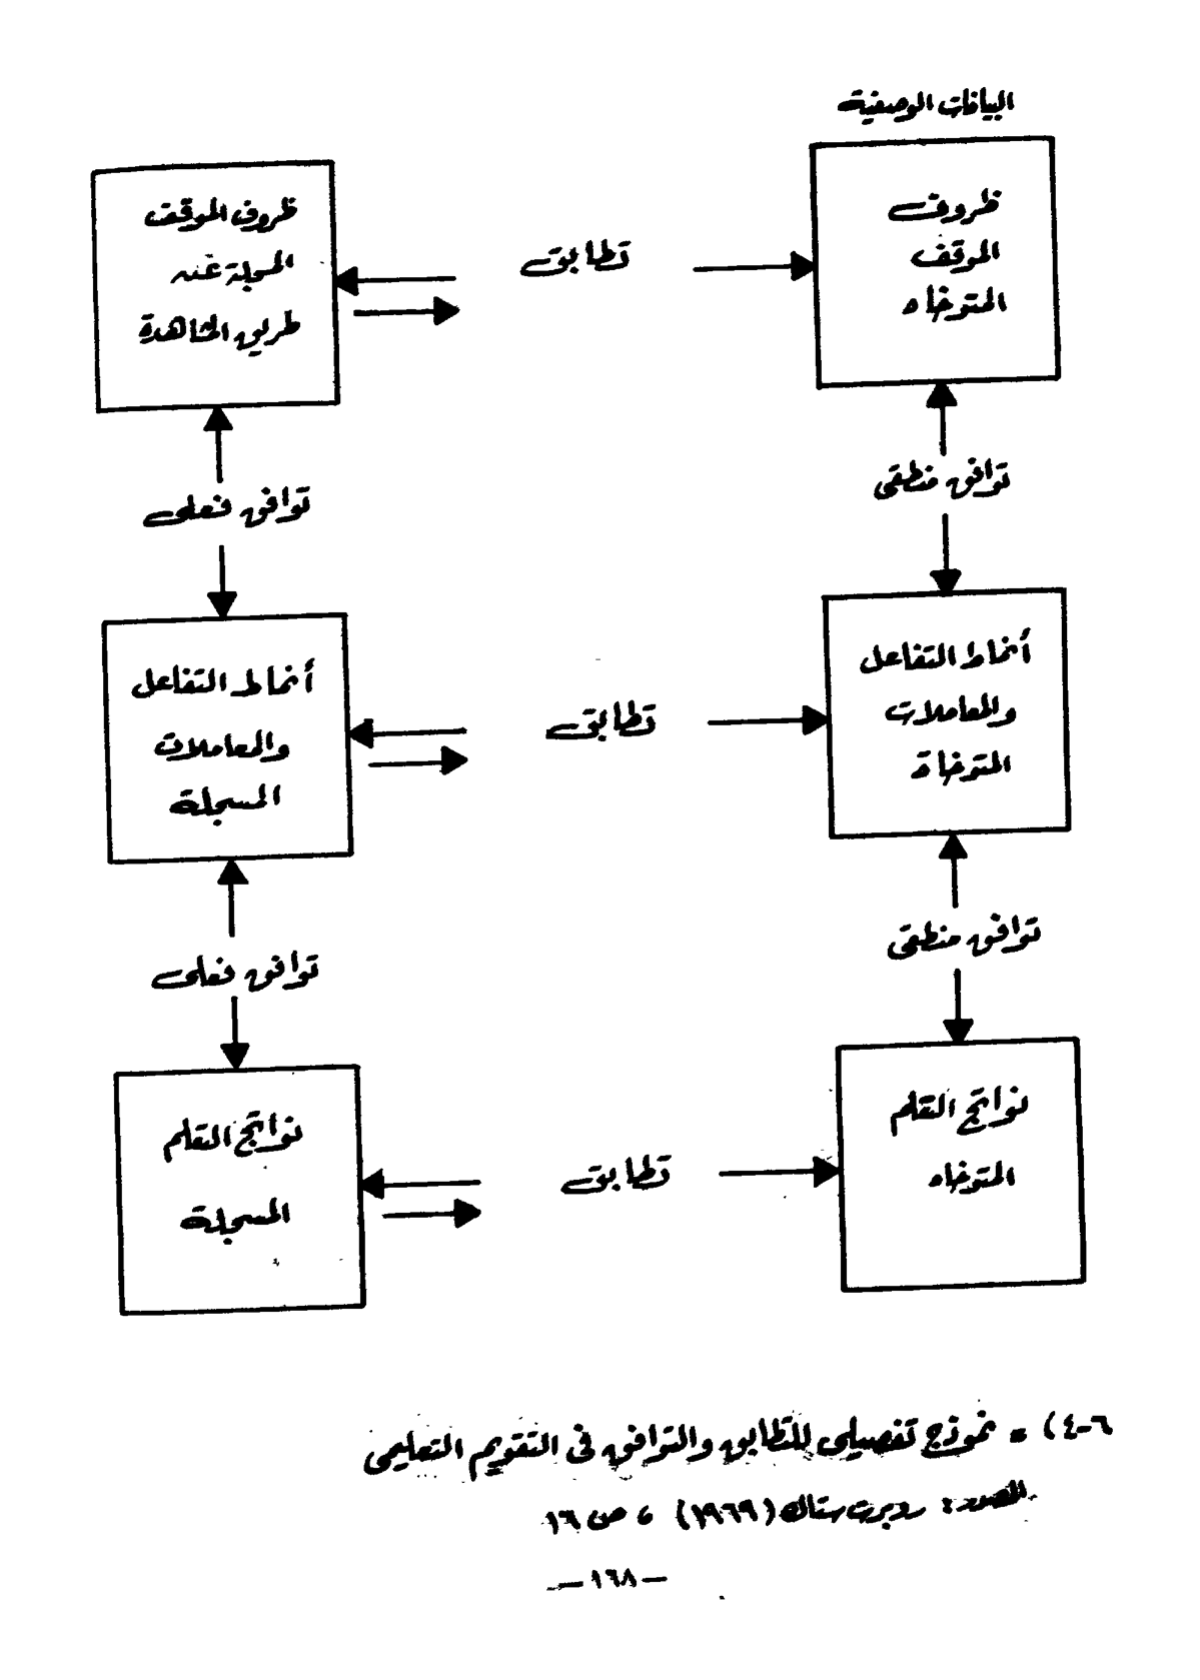 البيانات الوصفية
ظروف
الموقف
المتوخاه
تطابق
ظروف الموقف
المسجلة عنه
طريق المشاهدة
توافق منطقى
توافق فعلى
أنماط التفاعل
والمعاملات
المتوخاة
تطابق
أنماط التفاعل
والمعاملات
المسجلة
توافق منطقى
توافق فعلى
نواتج التعلم
المتوخاه
تطابق
نواتج التعلم
المسجلة
٦-٤) = نموذج تفصيلى للتطابق والتوافق فى التقويم التعليمى
المصدر: روبرت ستاك (١٩٦٩) ، ص ١٦
— ١٦٨ —